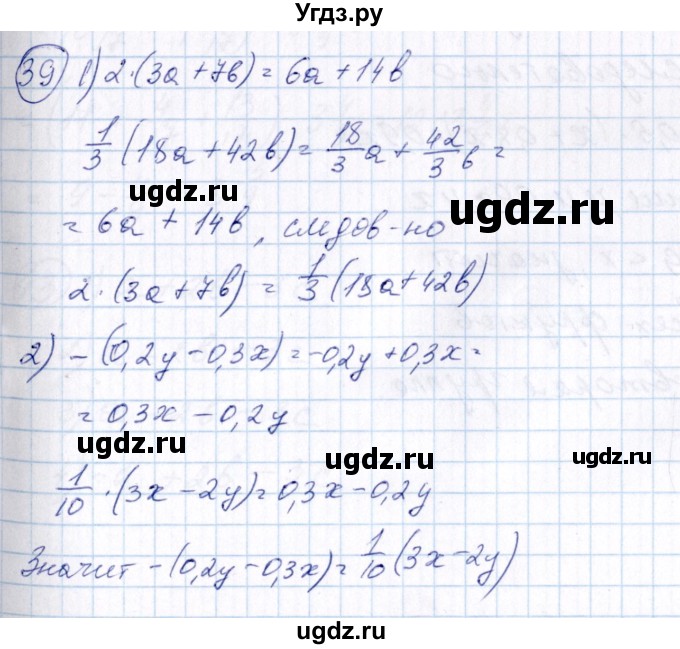 Угдз.ру
39) 1) 2·(3a+7в) = 6a+14в
1/3 (18a+42в) = 18/3 a + 42/3 в =
= 6a + 14в, следов-но
2·(3a+7в) = 1/3 (18a+42в)
2) -(0,2y-0,3x) = -0,2y+0,3x =
= 0,3x - 0,2y
1/10 ·(3x-2y) = 0,3x-0,2y
Значит -(0,2y-0,3x) = 1/10 (3x-2y)
ugdz.ru
ugdz.ru
ugdz.ru
ugdz.ru
ugdz.ru
ugdz.ru